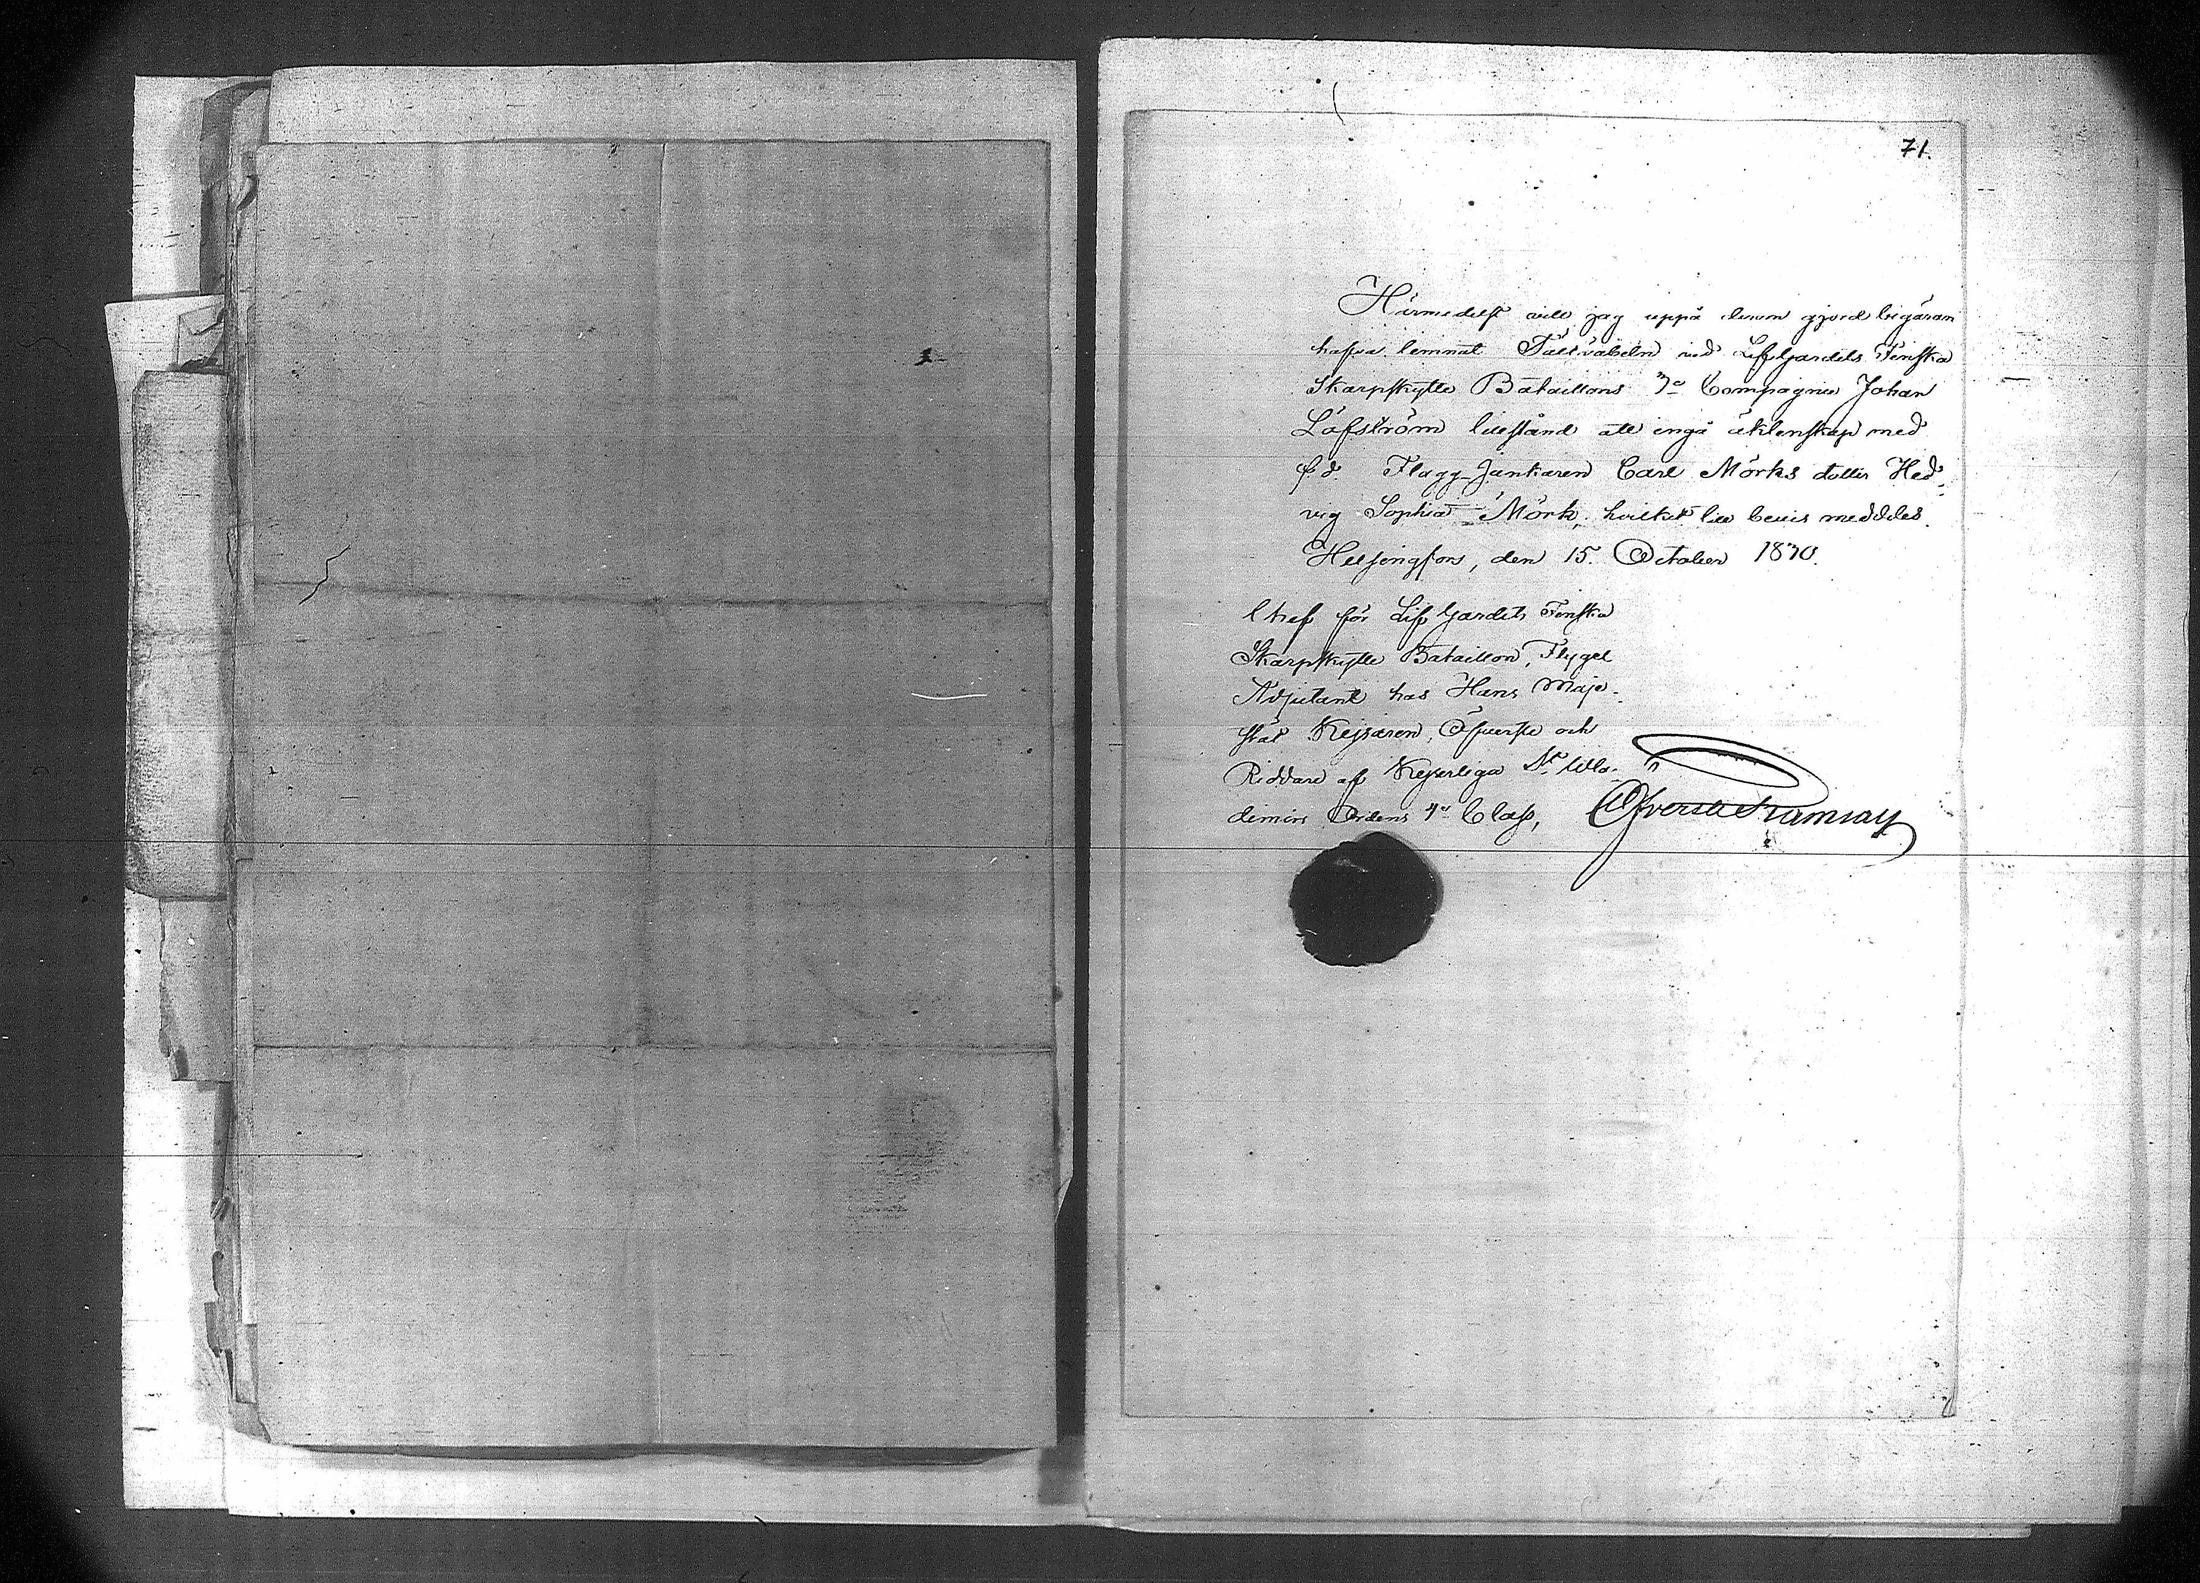 71.
Härmedelst vill jag uppå derom gjord begäran
hafva lemnat Fältväbeln vid Lif Gardets Finska
Skarpskytte Bataillons 3e Compagnie Johan
Löfström tillstånd att ingå äktenskap med
f. d. Flagg-Junkaren Carl Mörks dotter Hed-
vig Sophia Mörk, hvilket till bevis meddeles.
Helsingfors, den 15. October 1870.
Chef för Lif Gardets Finska
Skarpskytte Bataillon, Flygel
Adjutant hos Hans Maje-
stät Kejsaren, Öfverste och
Riddare af Kejserliga St. Wla-
dimirs Ordens 4e Class,
Ramsay